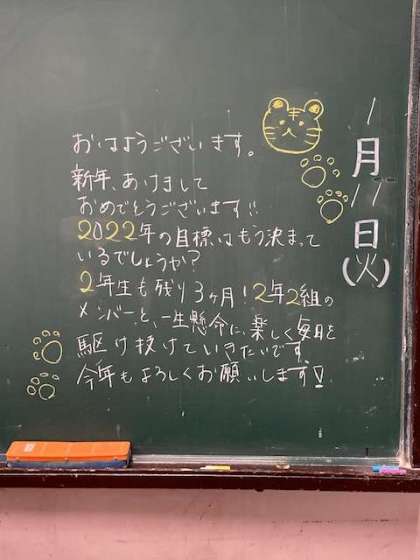 1月11日(火)
おはようございます。
新年、あけまして
おめでとうございます!!
2022年の目標はもう決まって
いるでしょうか?
2年生も残り3ヶ月!2年2組の
メンバーと、一生懸命に、楽しく毎日を
駆け抜けていきたいです。
今年もよろしくお願いします!